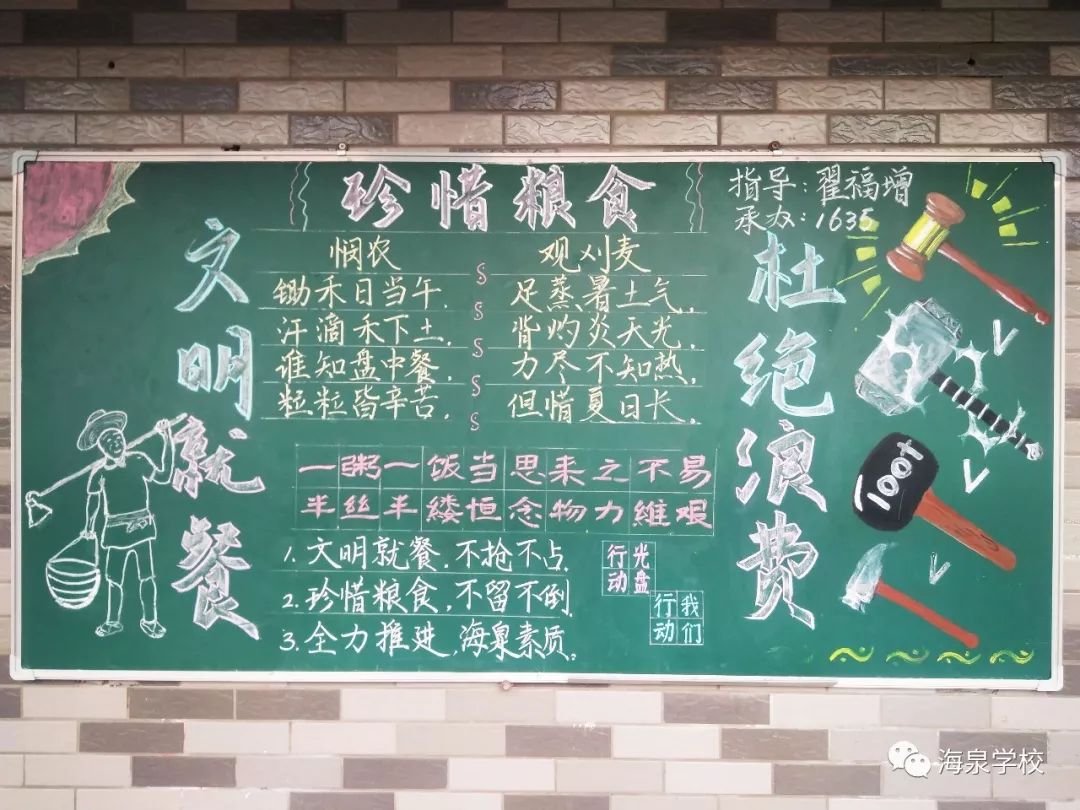 珍惜粮食
指导:翟福增
承办:1635
文明就餐
悯农
锄禾日当午.
汗滴禾下土.
谁知盘中餐,
粒粒皆辛苦.
观刈麦
足蒸暑土气,
背灼炎天光,
力尽不知热,
但惜夏日长.
杜绝浪费
一粥一饭当思来之不易
半丝半缕恒念物力維艰
1. 文明就餐,不抢不占.
2. 珍惜粮食,不留不倒.
3. 全力推进,海泉素质。
光盘
行动
我们
行动
100t
海泉学校